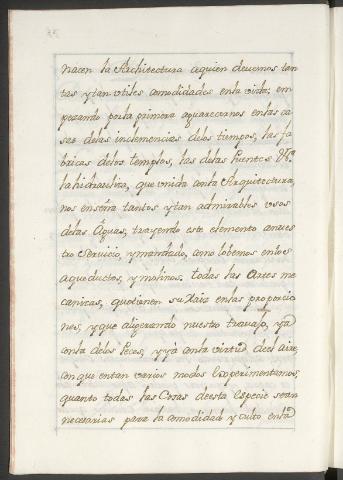 nacen la Architectura aquien devemos tan
tas ytan vtiles comodidades enla vida; em
pezando porla primera aquarecernos enlas ca
sas delas inclemencias delos tiempos, las fa
bricas delos templos, las delas Puentes &ª
la hidraulica, que vnida conla Arquitectura,
nos enseña tantos ytan admirables vsos
delas Aguas, trayendo este elemento anues
tro servicio, ymandado, como lobemos enlos
aqueductos, ymolinos. todas las Artes me
canicas, quetienen su Raiz enlas proporcio
nes, yque aligerando nuestro travajo, ya
conla delos Pesos, yyà conla virtud del aire,
con que entan varios modos Experimentamos,
quanto todas las Cosas deesta Especie sean
necesarias para la comodidad y culto enla